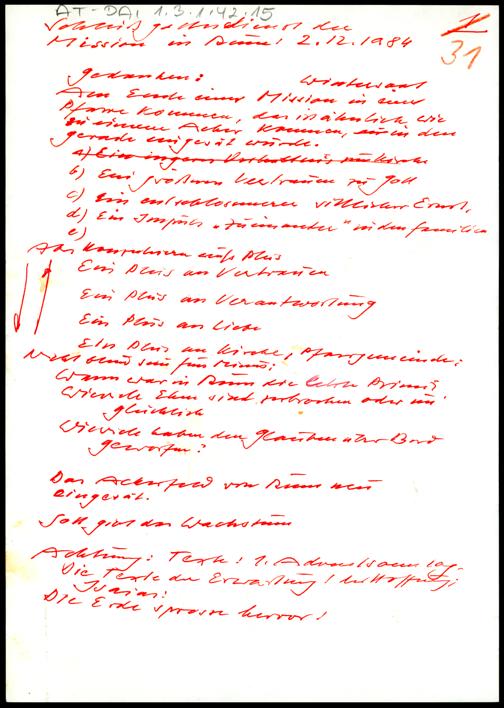 AT-DA, 1.3.1.42.15
Schlußgottesdienst der
Mission in Rum! 2.12.1984
31
Gedanken: Wintersaat
Am Ende einer Mission in eine
Pfarre kommen, das ist ähnlich wie
zu einem Acker kommen, in den
gerade eingesät wurde.
a) Ein Verhältnis zur Kirche
b) Ein größeres Vertrauen zu Gott
c) Ein entschlossenerer sittlicher Ernst,
d) Ein Impuls "zueinander" in den Familien
e)
Also aufs Plus
Ein Plus an Vertrauen
Ein Plus an Verantwortung
Ein Plus an Liebe
Ein Plus an Kirche, Pfarrgemeinde:
Nicht blind sein fürs Minus:
Wann war in Rum die letzte Primiz
Wieviele Ehen sind zerbrochen oder un-
glücklich
Wieviele haben den Glauben über Bord
geworfen?
Das Ackerfeld von Rum neu
eingesät.
Gott gibt das Wachstum
Achtung: Texte! 1. Adventsonntag.
Die Texte der Erwartung! der Hoffnung:
Isaias:
Die Erde sprosse hervor!